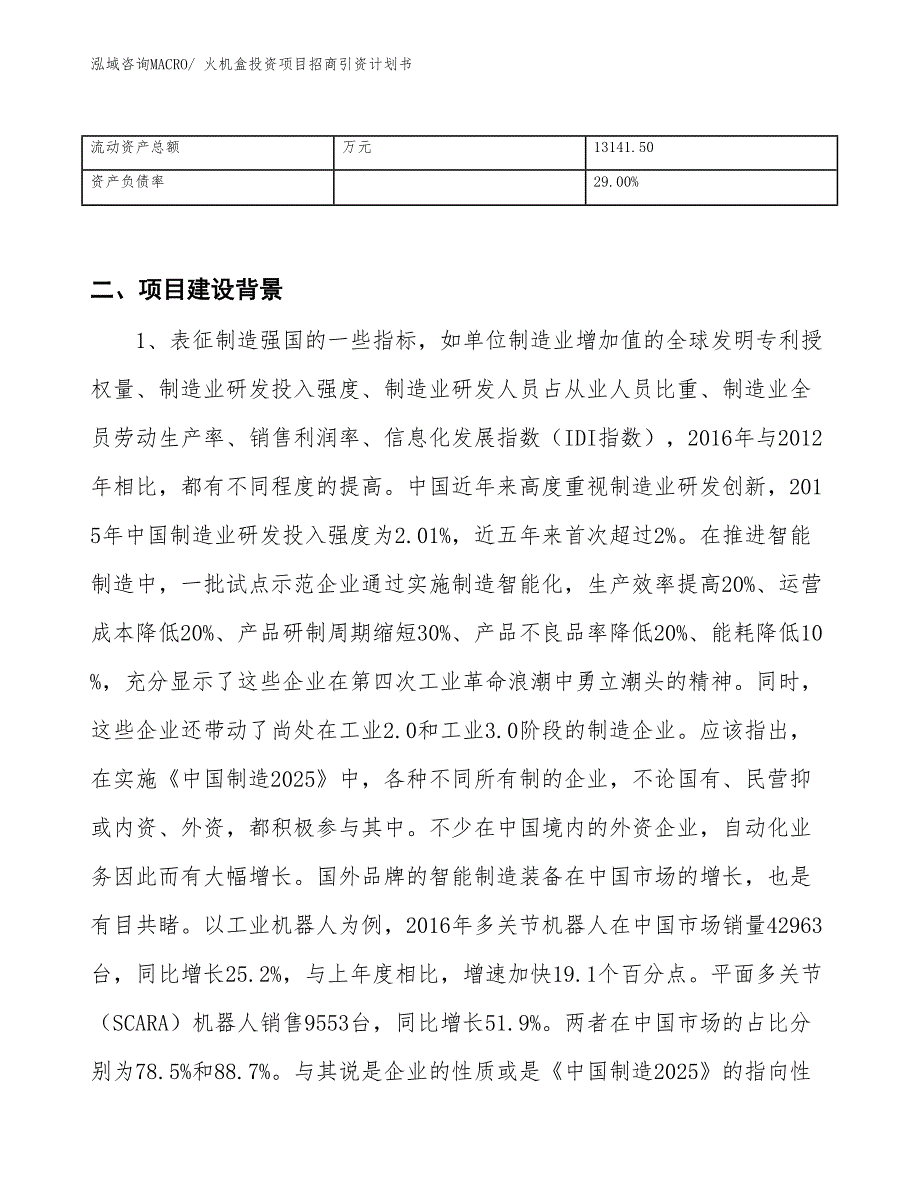 泓域咨询MACRO/ 火机盒投资项目招商引资计划书
流动资产总额 万元 13141.50
资产负债率 29.00%
二、项目建设背景
1、表征制造强国的一些指标，如单位制造业增加值的全球发明专利授
权量、制造业研发投入强度、制造业研发人员占从业人员比重、制造业全
员劳动生产率、销售利润率、信息化发展指数（IDI指数），2016年与2012
年相比，都有不同程度的提高。中国近年来高度重视制造业研发创新，201
5年中国制造业研发投入强度为2.01%，近五年来首次超过2%。在推进智能
制造中，一批试点示范企业通过实施制造智能化，生产效率提高20%、运营
成本降低20%、产品研制周期缩短30%、产品不良品率降低20%、能耗降低10
%，充分显示了这些企业在第四次工业革命浪潮中勇立潮头的精神。同时，
这些企业还带动了尚处在工业2.0和工业3.0阶段的制造企业。应该指出，
在实施《中国制造2025》中，各种不同所有制的企业，不论国有、民营抑
或内资、外资，都积极参与其中。不少在中国境内的外资企业，自动化业
务因此而有大幅增长。国外品牌的智能制造装备在中国市场的增长，也是
有目共睹。以工业机器人为例，2016年多关节机器人在中国市场销量42963
台，同比增长25.2%，与上年度相比，增速加快19.1个百分点。平面多关节
（SCARA）机器人销售9553台，同比增长51.9%。两者在中国市场的占比分
别为78.5%和88.7%。与其说是企业的性质或是《中国制造2025》的指向性